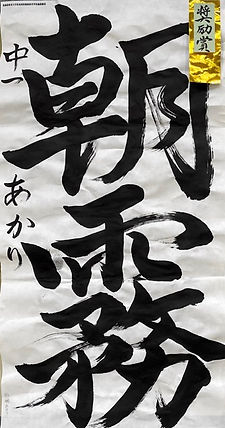 奨励賞
朝霧
中一 あかり